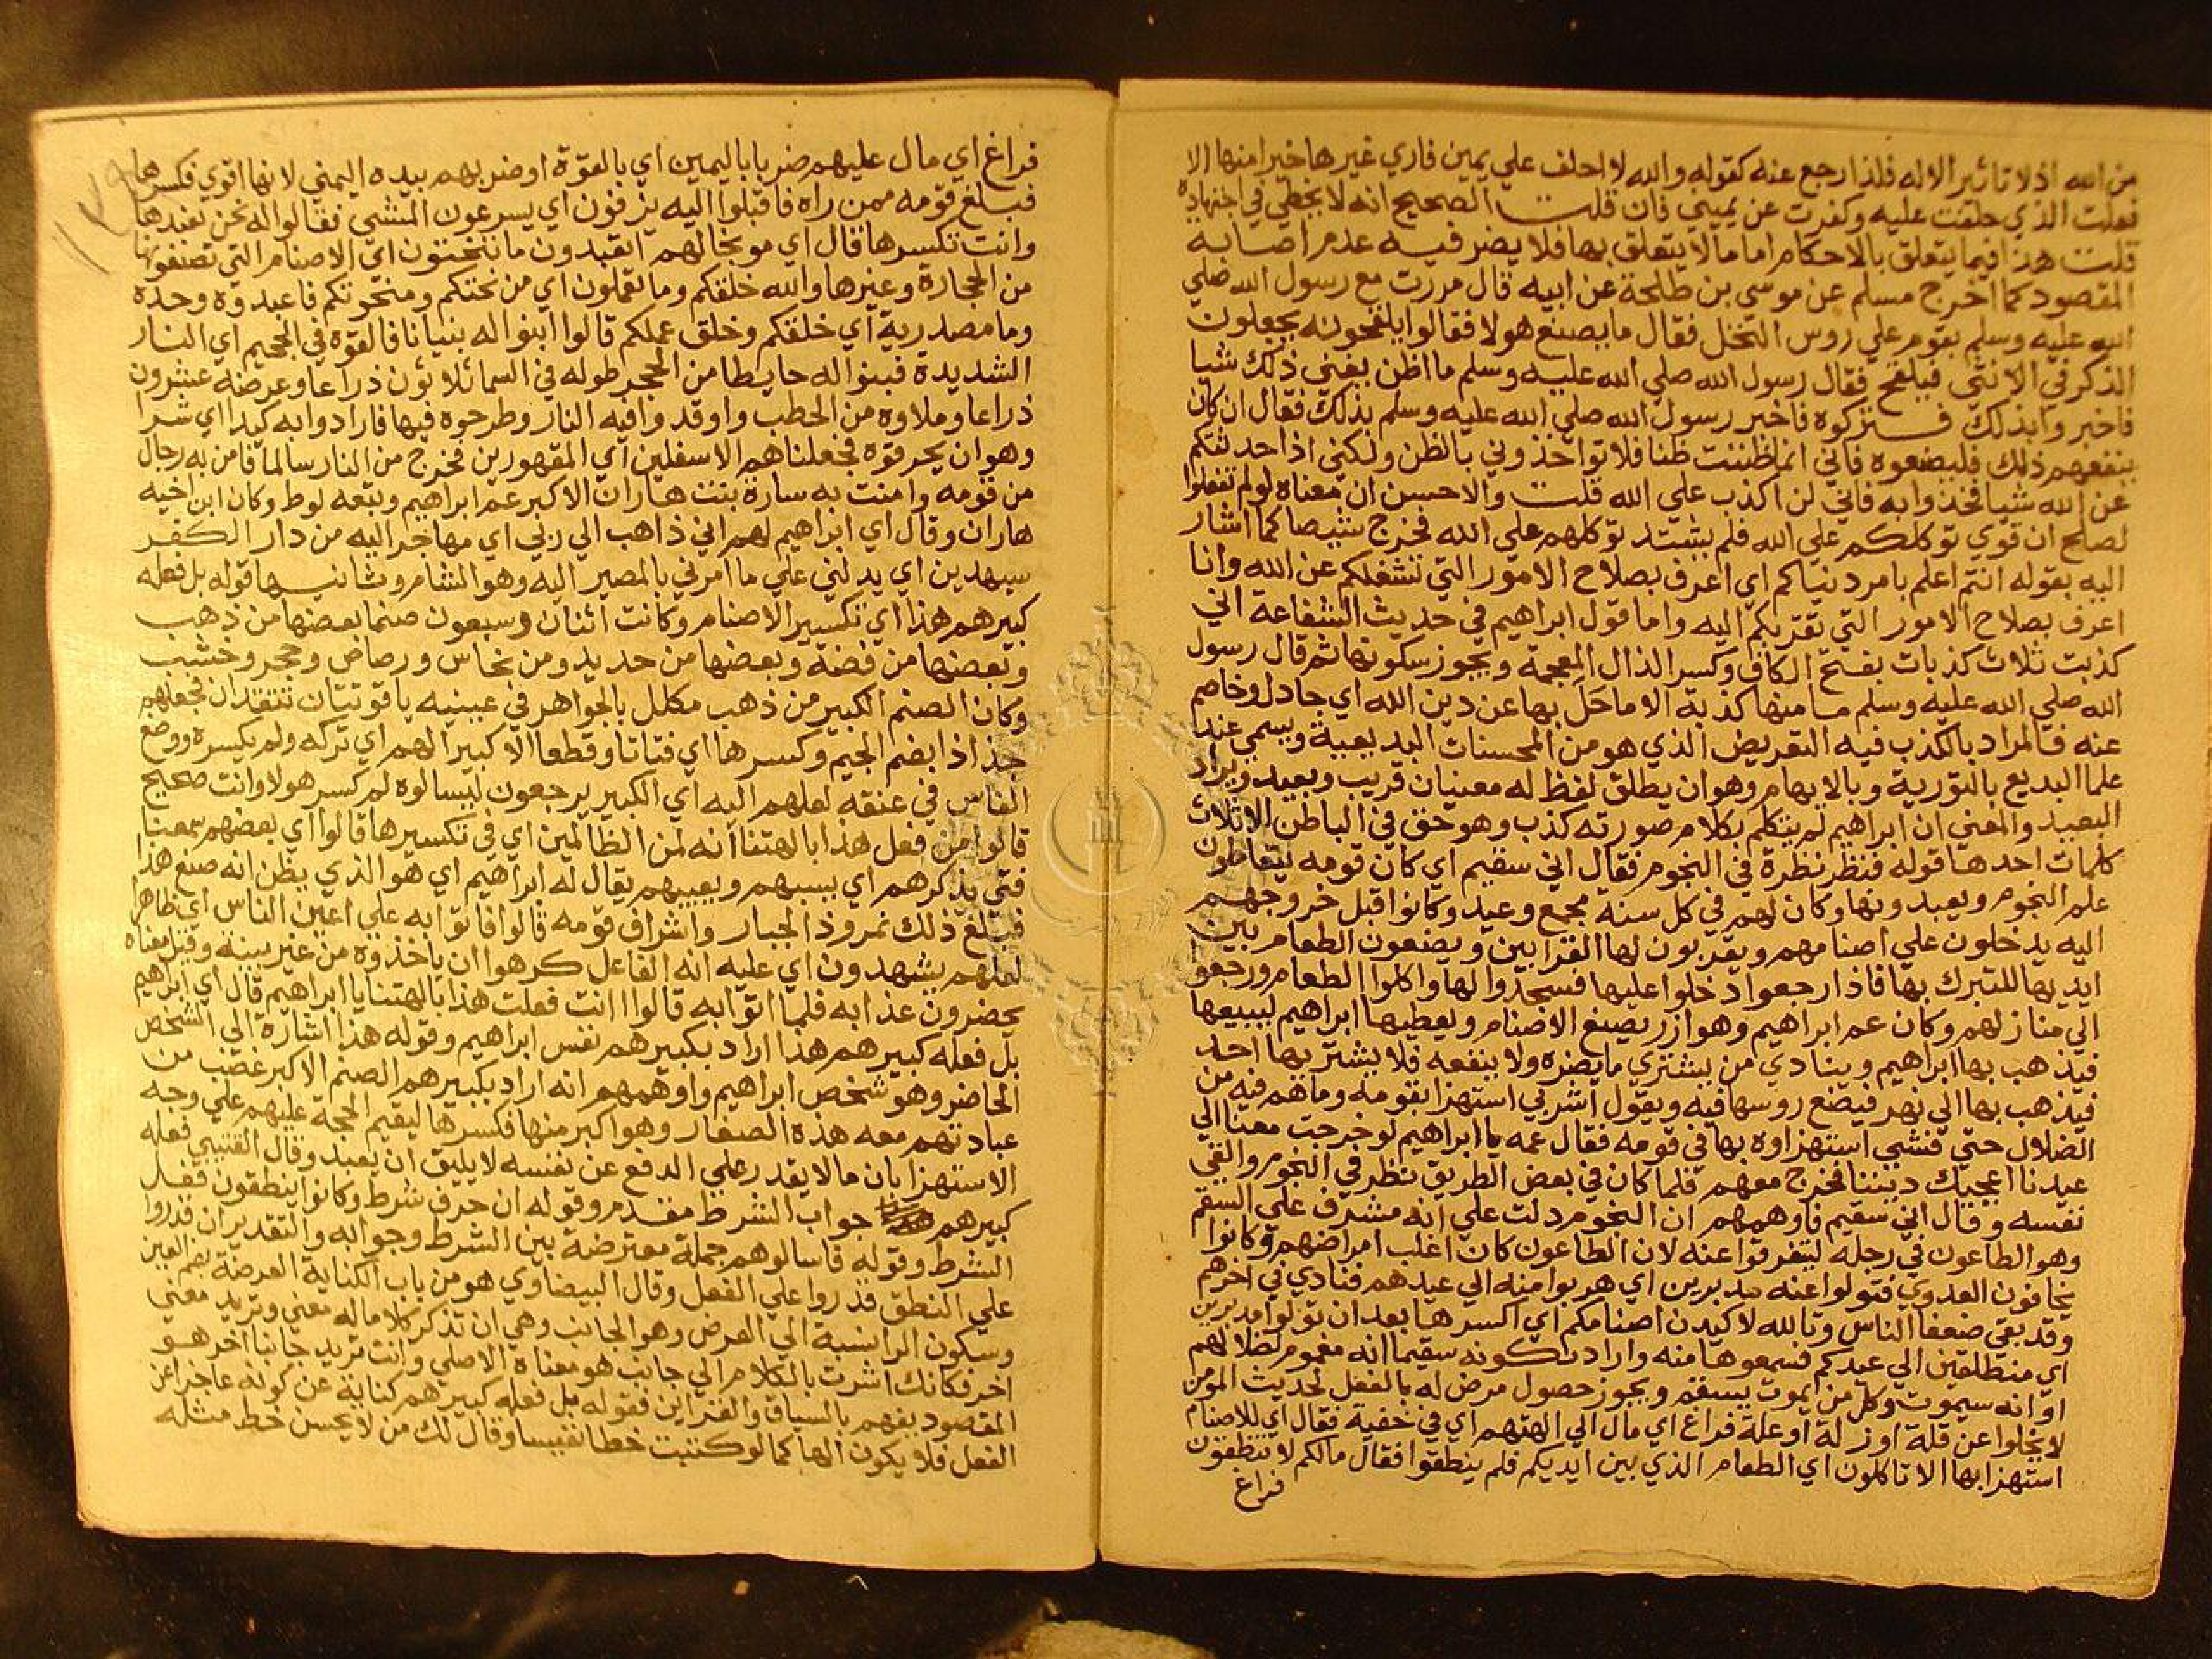 من الله اذ لا تاثير الا له فلذا رجع عنه كقوله والله لا احلف علي يمين فاري غيرها خيرا منها الا
فعلت الذي حلفت عليه وكفرت عن يميني فان قلت الصحيح انه لا يخطي في اجتهاده
قلت هذا فيما يتعلق بالاحكام اما ما لا يتعلق بها فلا يضر فيه عدم اصابة
المقصود كما اخرج مسلم عن موسي بن طلحة عن ابيه قال مررت مع رسول الله صلي
الله عليه وسلم بقوم علي روس النخل فقال ما يصنع هولا فقالوا يلقحونه يجعلون
الذكر في الانثي فيلقح فقال رسول الله صلي الله عليه وسلم ما اظن يغني ذلك شيا
فاخبروا بذلك فتركوه فاخبر رسول الله صلي الله عليه وسلم بذلك فقال ان كان
ينفعهم ذلك فليصنعوه فاني انما ظننت ظنا فلا تواخذوني بالظن ولكني اذا حدثتكم
عن الله شيا فخذوا به فاني لن اكذب علي الله قلت والاحسن ان معناه لو لم تفعلوا
لصلح ان قوي توكلكم علي الله فلم يشتد توكلهم علي الله فخرج شيصا كما اشار
اليه بقوله انتم اعلم بامر دنياكم اي اعرف بصلاح الامور التي تشغلكم عن الله وانا
اعرف بصلاح الامور التي تقربكم اليه واما قول ابراهيم في حديث الشفاعة اني
كذبت ثلاث كذبات بفتح الكاف وكسر الذال المعجمة ويجوز سكونها ثم قال رسول
الله صلي الله عليه وسلم ما منها كذبة الا ماحل بها عن دين الله اي جادل وخاصم
عنه فالمراد بالكذب فيه التعريض الذي هو من المحسنات البديعية ويسمي عند
علما البديع بالتورية وبالايهام وهو ان يطلق لفظ له معنيان قريب وبعيد ويراد
البعيد والمعني ان ابراهيم لم يتكلم بكلام صورته كذب وهو حق في الباطن الا ثلاث
كلمات احدها قوله فنظر نظرة في النجوم فقال اني سقيم اي كان قومه يتعاطون
علم النجوم ويعبدونها وكان لهم في كل سنة مجمع وعيد وكانوا قبل خروجهم
اليه يدخلون علي اصنامهم ويقربون لها القرابين ويضعون الطعام بين
ايديها للتبرك بها فاذا رجعوا دخلوا عليها فسجدوا لها واكلوا الطعام ورجعوا
الي منازلهم وكان عم ابراهيم وهو ازر يصنع الاصنام ويعطيها ابراهيم ليبيعها
فيذهب بها ابراهيم وينادي من يشتري ما يضره ولا ينفعه فلا يشتريها احد
فيذهب بها الي نهر فيضع روسها فيه ويقول اشربي استهزا بقومه وما هم فيه من
الضلال حتي فشي استهزاوه بها في قومه فقال عمه يا ابراهيم لو خرجت معنا الي
عيدنا اعجبك ديننا فخرج معهم فلما كان في بعض الطريق نظر في النجوم والقي
نفسه وقال اني سقيم فاوهمهم ان النجوم دلت علي انه مشرف علي السقم
وهو الطاعون في رجله ليتفرقوا عنه لان الطاعون كان اغلب امراضهم وكانوا
يخافون العدوي فتولوا عنه مدبرين اي هربوا منه الي عيدهم فنادي في اخرهم
وقد بقي ضعفا الناس وتالله لاكيدن اصنامكم اي اكسرها بعد ان تولوا مدبرين
اي منطلقين الي عيدكم فسمعوها منه واراد بكونه سقيما انه مغموم لضلالهم
او انه سيموت وكل من يموت يسقم ويجوز حصول مرض له بالفعل لحديث المومن
لا يخلوا عن قلة او زلة او علة فراغ اي مال الي الهتهم اي في خفية فقال اي للاصنام
استهزا بها الا تاكلون اي الطعام الذي بين ايديكم فلم ينطقوا فقال مالكم لا تنطقون
فراغ
فراغ اي مال عليهم ضربا باليمين اي بالقوة او ضربهم بيده اليمني لانها اقوي فكسرها
فبلغ قومه ممن راه فاقبلوا اليه يزفون اي يسرعون المشي فقالوا له نحن نعبدها
وانت تكسرها قال اي موبخا لهم اتعبدون ما تنحتون اي الاصنام التي تصنعونها
من الحجارة وغيرها والله خلقكم وما تعملون اي من نحتكم ومنحوتكم فاعبدوه وحده
وما مصدرية اي خلقكم وخلق عملكم قالوا ابنوا له بنيانا فالقوه في الجحيم اي النار
الشديدة فبنوا له حايطا من الحجر طوله في السما ثلاثون ذراعا وعرضه عشرون
ذراعا وملاوه من الحطب واوقدوا فيه النار وطرحوه فيها فارادوا به كيدا اي شرا
وهو ان يحرقوه فجعلناهم الاسفلين اي المقهورين فخرج من النار سالما فامن به رجال
من قومه وامنت به سارة بنت هاران الاكبر عم ابراهيم وتبعه لوط وكان ابن اخيه
هاران وقال اي ابراهيم لهم اني ذاهب الي ربي اي مهاجر اليه من دار الكفر
سيهدين اي يدلني علي ما امرني بالمصير اليه وهو الشام وثانيها قوله بل فعله
كبيرهم هذا اي تكسير الاصنام وكانت اثنان وسبعون صنما بعضها من ذهب
وبعضها من فضة وبعضها من حديد ومن نحاس ورصاص وحجر وخشب
وكان الصنم الكبير من ذهب مكلل بالجواهر في عينيه ياقوتتان تتقدان فجعلهم
جذاذا بضم الجيم وكسرها اي فتاتا وقطعا الا كبيرا لهم اي تركه ولم يكسره ووضع
الفاس في عنقه لعلهم اليه اي الكبير يرجعون ليسالوه لم كسر هولا وانت صحيح
قالوا من فعل هذا بالهتنا انه لمن الظالمين اي في تكسيرها قالوا اي بعضهم سمعنا
فتي يذكرهم اي يسبهم ويعيبهم يقال له ابراهيم اي هو الذي يظن انه صنع هذا
فبلغ ذلك نمروذ الجبار واشراف قومه قالوا فاتوا به علي اعين الناس اي ظاهرا
لعلهم يشهدون اي عليه انه الفاعل كرهوا ان ياخذوه من غير بينة وقيل معناه
يحضرون عذابه فلما اتوا به قالوا اانت فعلت هذا بالهتنا يا ابراهيم قال اي ابراهيم
بل فعله كبيرهم هذا اراد بكبيرهم نفس ابراهيم وقوله هذا اشارة الي الشخص
الحاضر وهو شخص ابراهيم واوهمهم انه اراد بكبيرهم الصنم الاكبر غضب من
عبادتهم معه هذه الصغار وهو اكبر منها فكسرها ليقيم الحجة عليهم علي وجه
الاستهزا بان ما لا يقدر علي الدفع عن نفسه لا يليق ان يعبد وقال القتيبي فعله
كبيرهم جواب الشرط مقدم وقوله ان حرف شرط وكانوا ينطقون فعل
الشرط وقوله فاسالوهم جملة معترضة بين الشرط وجوابه والتقدير ان قدروا
علي النطق قدروا علي الفعل وقال البيضاوي هو من باب الكناية العرضة بضم العين
وسكون الرا نسبة الي العرض وهو الجانب وهي ان تذكر كلاما له معني وتريد معني
اخر فكانك اشرت بالكلام الي جانب هو معناه الاصلي وانت تريد جانبا اخر هو
المقصود يفهم بالسياق والقراين فقوله بل فعله كبيرهم كناية عن كونه عاجزا عن
الفعل فلا يكون الها كما لو كتبت خطا نفيسا وقال لك من لا يحسن خط مثله